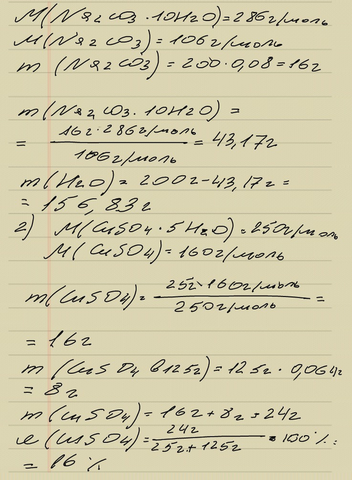 M(Na₂CO₃·10H₂O)=286г/моль
M(Na₂CO₃)=106г/моль
m(Na₂CO₃)=200·0,08=16г
m(Na₂CO₃·10H₂O)=
= 16г·286г/моль / 106г/моль = 43,17г
m(H₂O)=200г-43,17г=
=156,83г
2) M(CuSO₄·5H₂O)=250г/моль
M(CuSO₄)=160г/моль
m(CuSO₄)= 25г·160г/моль / 250г/моль =
=16г
m(CuSO₄ в 125г)=125г·0,064г
=8г
m(CuSO₄)=16г+8г=24г
ω(CuSO₄)= 24г / 25г+125г ·100%=
=16%